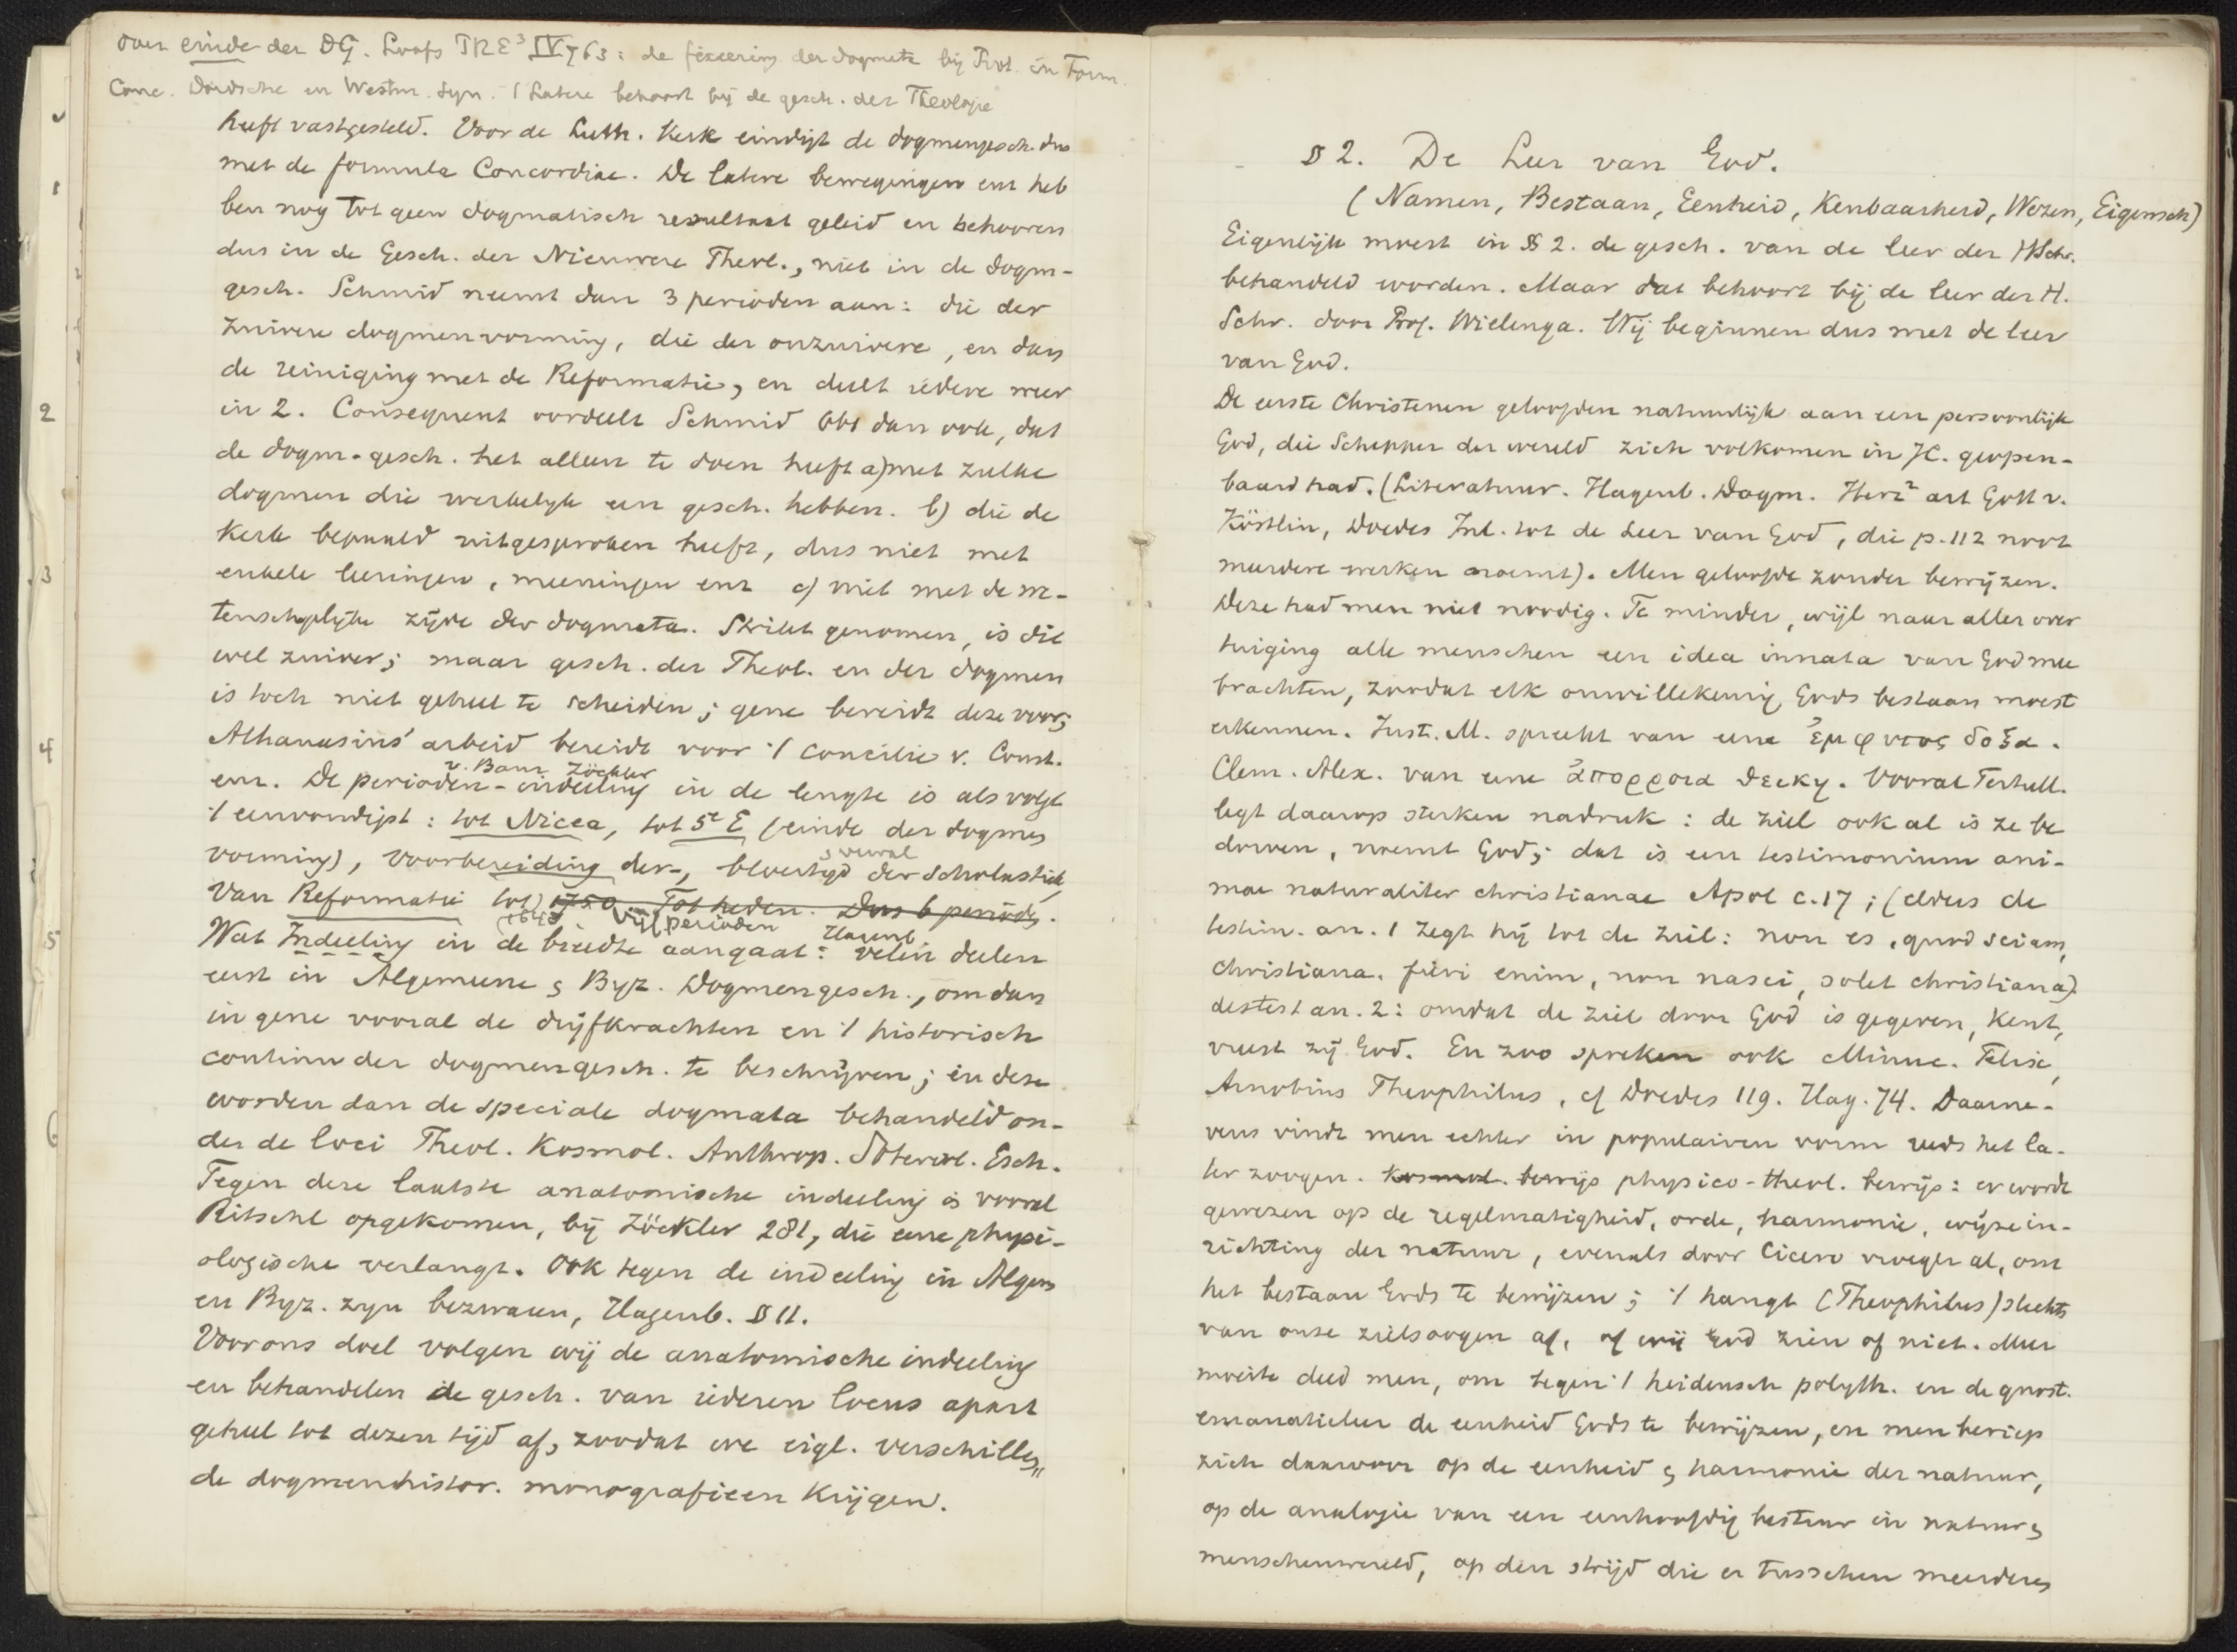 over einde der DG. Loofs PRE³ IV 763: de fixeering der dogmata bij Prot. in Form.
Conc. Dordsche en Westm. Syn. 't Latere behoort bij de gesch. der Theologie
heeft vastgesteld. Voor de Luth. Kerk eindigt de dogmengesch. dus
met de formula Concordiae. De latere bewegingen enz heb
ben nog tot geen dogmatisch resultaat geleid en behooren
dus in de Gesch. der Nieuwere Theol., niet in de dogm-
gesch. Schmid neemt dan 3 perioden aan: die der
zuivere dogmenvorming, die der onzuivere, en dan
de reiniging met de Reformatie, en deelt iedere weer
in 2. Consequent oordeelt Schmid dan ook, dat
de dogm-gesch. het alleen te doen heeft a) met zulke
dogmen die werkelijk een gesch. hebben. b) die de
Kerk bepaald uitgesproken heeft, dus niet met
enkele leeringen, meeningen enz c) niet met de we-
tenschaplijke zijde der dogmata. Strikt genomen, is dit
wel zuiver; maar gesch. der Theol. en der dogmen
is toch niet geheel te scheiden; gene bereidt deze voor;
Athanasius' arbeid bereidt voor 't concilie v. Const.
v. Baur Zöckler
enz. De perioden-indeeling in de lengte is als volgt
't eenvoudigst: tot Nicea, tot 5e E (einde der dogmen
vorming), voorbereiding der-, bloeitijd & verval der Scholastiek,
van Reformatie tot 1750. Tot heden. Dus 6 perioden.
1648 Vijf perioden Hagenb.
Wat Indeeling in de breedte aangaat: velen deelen
eerst in Algemeene & Byz. Dogmengesch., om dan
in gene vooral de drijfkrachten en 't historisch
continu der dogmengesch. te beschrijven; in deze
worden dan de speciale dogmata behandeld on-
der de loci Theol. Kosmol. Anthrop. Soterol. Esch.
Tegen deze laatste anatomische indeeling is vooral
Ritschl opgekomen, bij Zöckler 281, die eene physi-
ologische verlangt. Ook tegen de indeeling in Algem
en Byz. zijn bezwaren, Hagenb. § 11.
Voor ons doel volgen wij de anatomische indeeling
en behandelen de gesch. van iederen locus apart
geheel tot dezen tijd af, zoodat we eigl. verschillen
de dogmenhistor. monografieen krijgen.
1
2
3
4
5
6
§ 2. De Leer van God.
(Namen, Bestaan, Eenheid, Kenbaarheid, Wezen, Eigensch)
Eigenlijk moest in § 2. de gesch. van de leer der HSchr.
behandeld worden. Maar dat behoort bij de leer der H.
Schr. door Prof. Wielenga. Wij beginnen dus met de leer
van God.
De eerste Christenen geloofden natuurlijk aan een persoonlijk
God, die Schepper der wereld zich volkomen in JC. geopen-
baard had. (Literatuur. Hagenb. Dogm. Herz² art Gott v.
Köstlin, Doedes Inl. tot de Leer van God, die p. 112 noot
meerdere werken noemt). Men geloofde zonder bewijzen.
Deze had men niet noodig. Te minder, wijl naar aller over
tuiging alle menschen een idea innata van God mee
brachten, zoodat elk onwillekeurig Gods bestaan moest
erkennen. Just. M. spreekt van eene ἐμφυτος δοξα.
Clem. Alex. van eene ἀποῤῥοια θεικη. Vooral Tertull.
legt daarop sterken nadruk: de ziel ook al is ze be
dorven, noemt God; dat is een testimonium ani-
mae naturaliter christianae Apol c. 17; (elders de
testim. an. 1 zegt hij tot de ziel: non es, quod sciam,
christiana. fieri enim, non nasci, solet christiana).
de test an. 2: omdat de ziel door God is gegeven, kent,
vreest zij God. En zoo spreken ook Minuc. Felix,
Arnobius Theophilus, cf Doedes 119. Hag. 74. Daarne-
vens vindt men echter in populairen vorm reeds het la-
ter zoogen. kosmol. bewijs physico-theol. bewijs: er wordt
gewezen op de regelmatigheid, orde, harmonie, wijze in-
richting der natuur, evenals door Cicero vroeger al, om
het bestaan Gods te bewijzen; 't hangt (Theophilus) slechts
van onze zielsoogen af, of wij God zien of niet. Meer
moeite deed men, om tegen 't heidensch polyth. en de gnost.
emanatieleer de eenheid Gods te bewijzen, en men beriep
zich daarvoor op de eenheid & harmonie der natuur,
op de analogie van een eenhoofdig bestuur in natuur &
menschenwereld, op den strijd die er tusschen meerdere